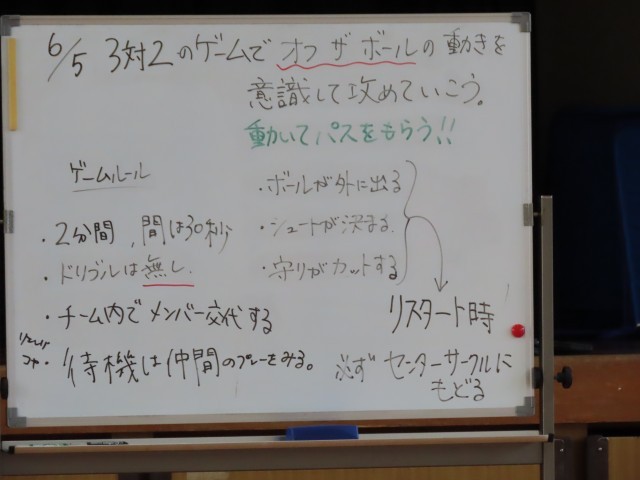 6/5 3対2のゲームでオフザボールの動きを
意識して攻めていこう。
動いてパスをもらう!!
ゲームルール
・2分間,間は30秒
・ドリブルは無し.
・チーム内でメンバー交代する
・待機は仲間のプレーをみる。
・ボールが外に出る
・シュートが決まる.
・守りがカットする
リスタート時
必ずセンターサークルに
もどる